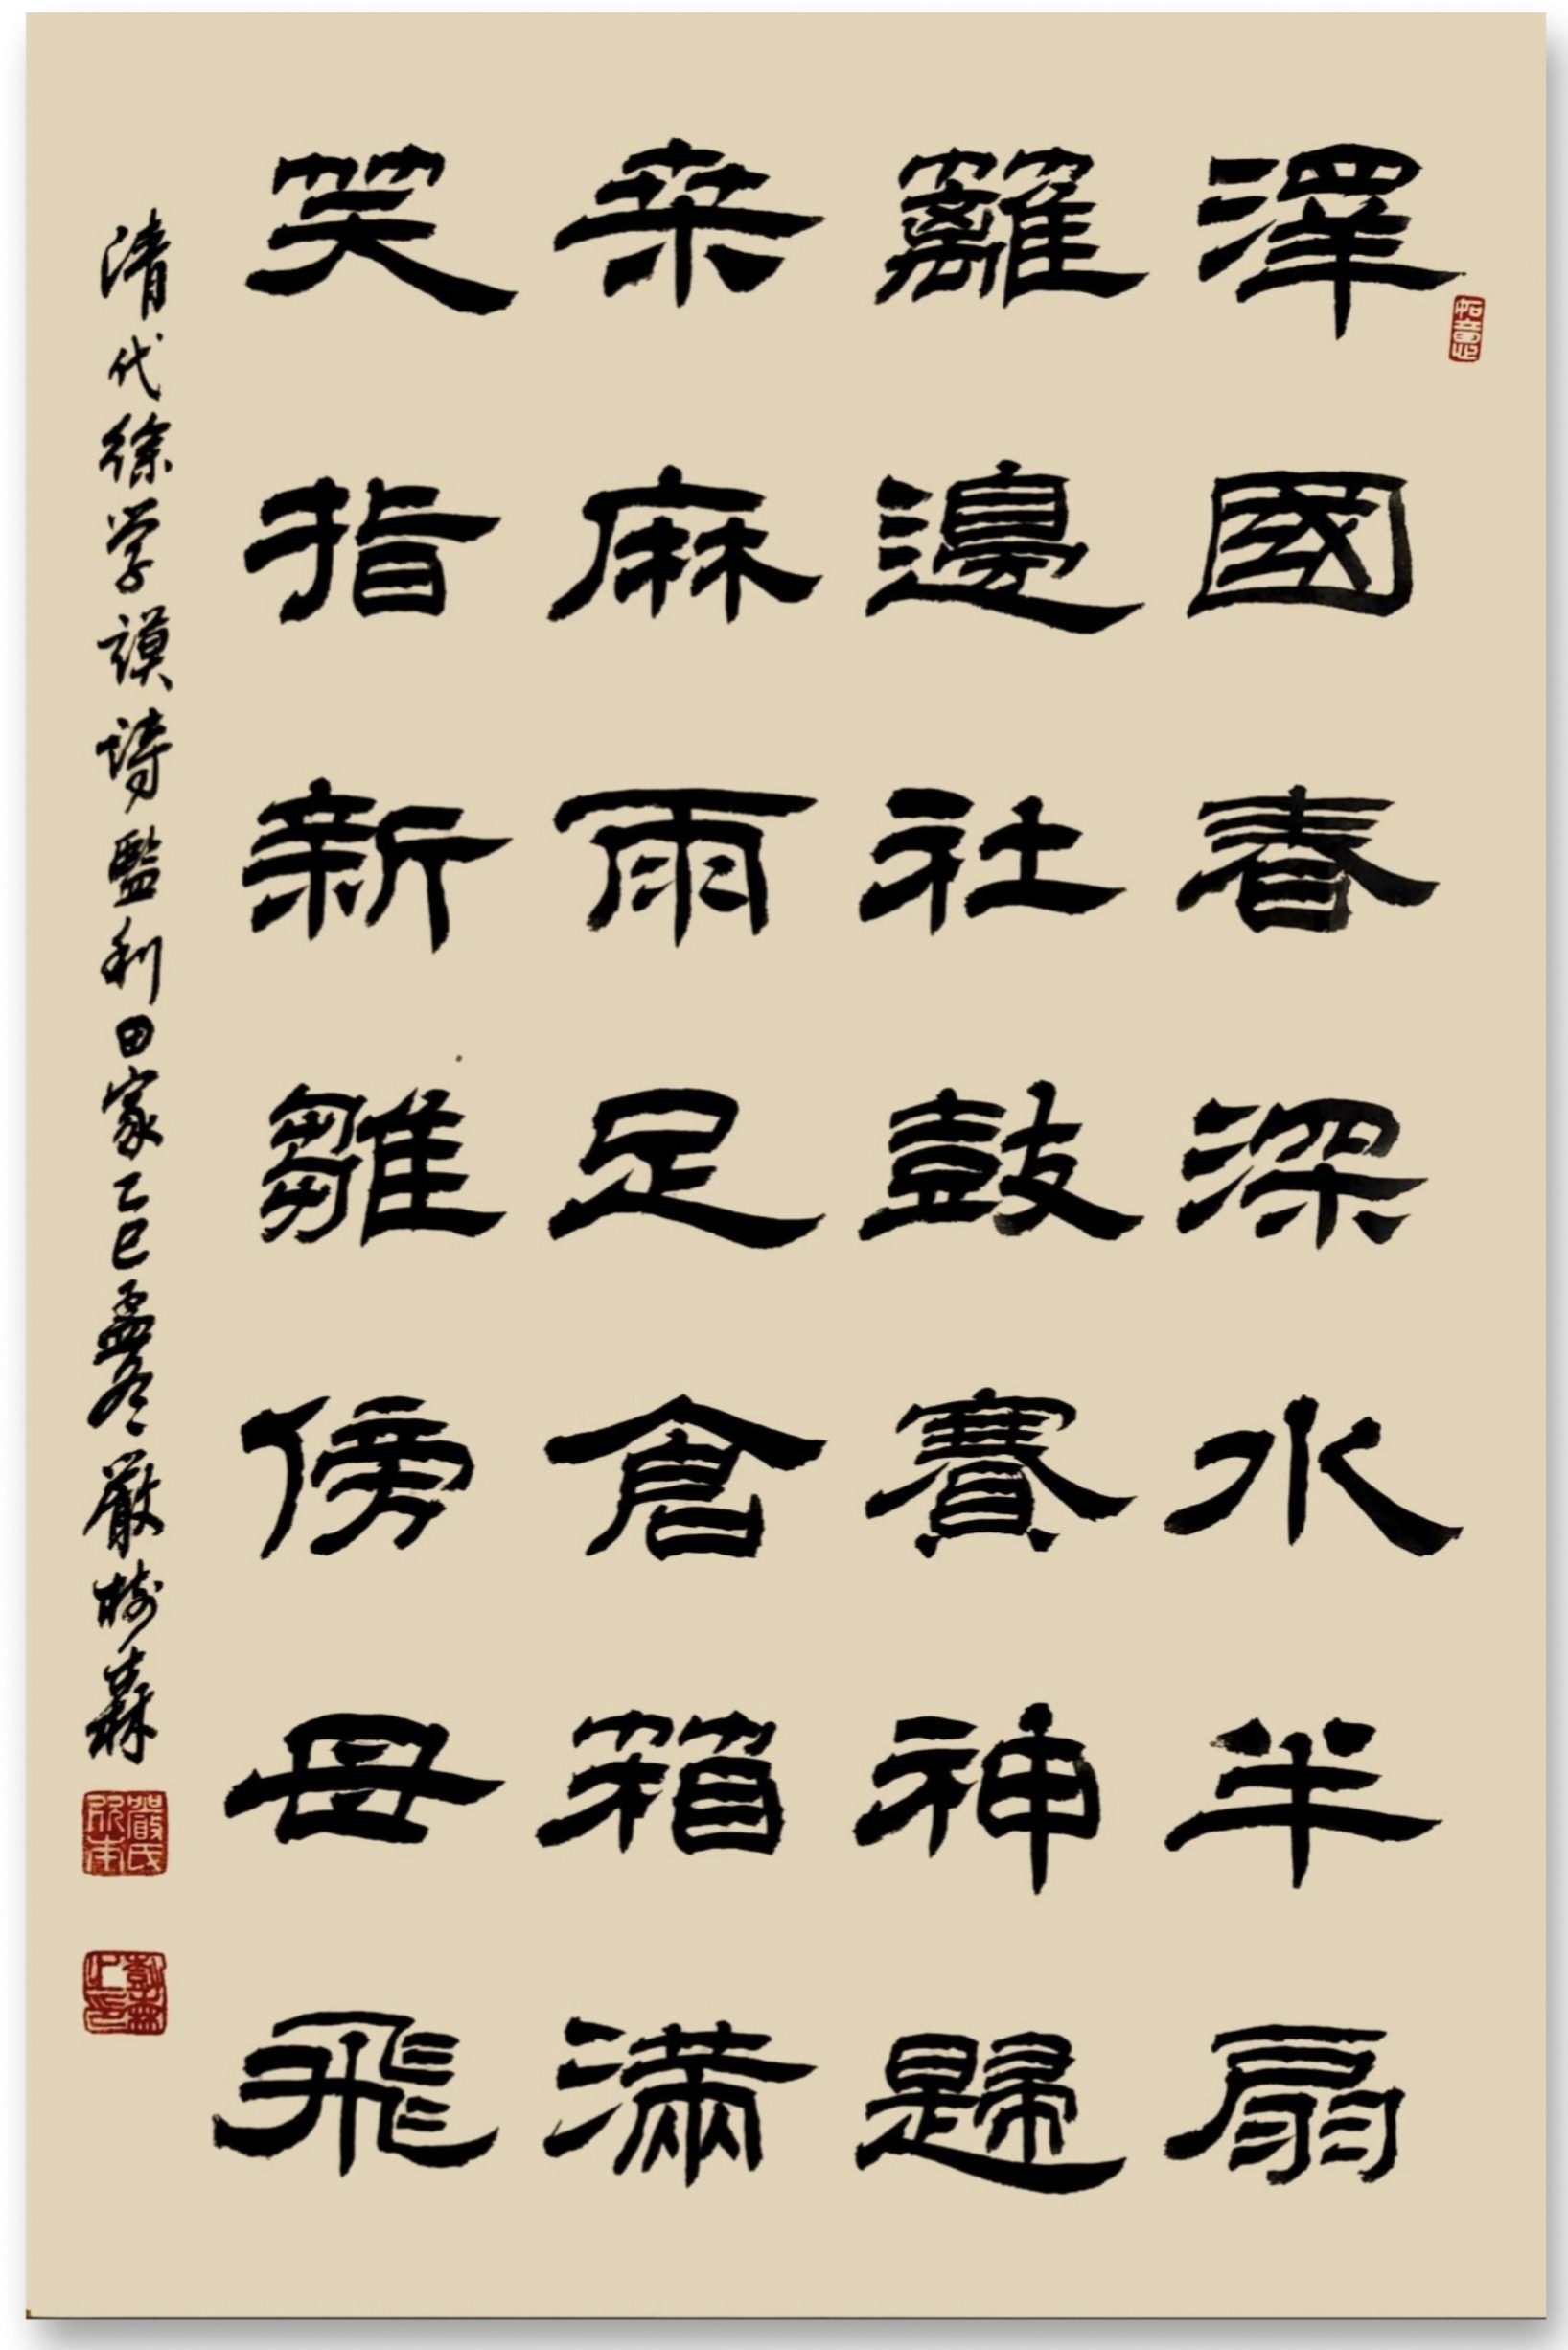 澤國春深水半扉
籬邊社鼓賽神歸
桒麻雨足倉箱滿
笑指新雛傍母飛
清代徐学謨詩監利田家乙巳孟冬嚴樹森